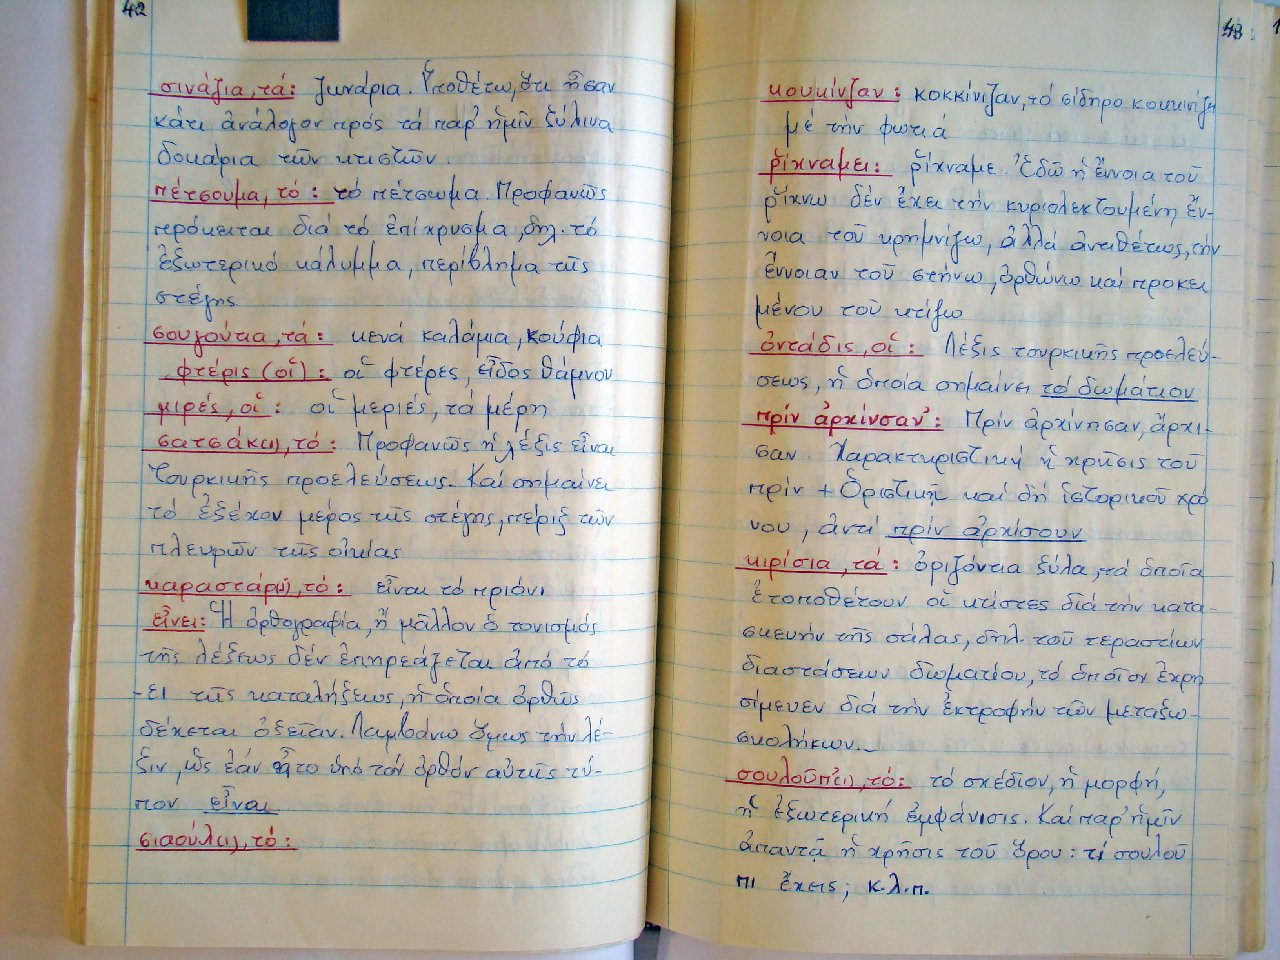 42
σινάζια, τά: ζωνάρια. Ὑποθέτω, ὅτι ἦσαν
κάτι ἀνάλογον πρός τά παρ' ἡμῖν ξύλινα
δοκάρια τῶν κτιστῶν.
πέτσουμα, τό: τό πέτσωμα. Προφανῶς
πρόκειται διά τό ἐπίχρυσμα, δηλ. τό
ἐξωτερικό κάλυμμα, περίβλημα τῆς
στέγης
σουγούτια, τά: κενά καλάμια, κούφια
φτέρις (οἱ): οἱ φτέρες, εἶδος θάμνου
μιρές, οἱ: οἱ μεριές, τά μέρη
σατσάκ(ι), τό: Προφανῶς ἡ λέξις εἶναι
Τουρκικῆς προελεύσεως. Καί σημαίνει
τό ἐξέχον μέρος τῆς στέγης, πέριξ τῶν
πλευρῶν τῆς οἰκίας
καραστάρ(ι), τό: εἶναι τό πριόνι
εἶνει: Ἡ ὀρθογραφία, ἤ μᾶλλον ὁ τονισμός
τῆς λέξεως δέν ἐπηρεάζεται ἀπό τό
-ει τῆς καταλήξεως, ἡ ὁποία ὀρθῶς
δέχεται ὀξεῖαν. Λαμβάνω ὅμως τήν λέ-
ξιν, ὡς ἐάν ἦτο ὑπό τόν ὀρθόν αὐτῆς τύ-
πον εἶναι
σιαούλ(ι), τό:
43
κουκίνιζαν: κοκκίνιζαν, τό σίδηρο κοκκινίζει
μέ τήν φωτιά
ρίχναμει: ρίχναμε. Ἐδῶ ἡ ἔννοια τοῦ
ρίχνω δέν ἔχει τήν κυριολεκτουμένη ἔν-
νοια τοῦ κρημνίζω, ἀλλά ἀντιθέτως, τήν
ἔννοιαν τοῦ στήνω, ὀρθώνω καί προκει
μένου τοῦ κτίζω
ὀντάδις, οἱ: Λέξις τουρκικῆς προελεύ-
σεως, ἡ ὁποία σημαίνει τό δωμάτιον
πρίν ἀρχίνσαν': Πρίν ἀρχίνησαν, ἄρχι-
σαν. Χαρακτηριστική ἡ χρῆσις τοῦ
πρίν + Ὁριστική καί δή ἱστορικοῦ χρό
νου, ἀντί πρίν ἀρχίσουν
κιρίσια, τά: ὁριζόντια ξύλα, τά ὁποῖα
ἐτοποθέτουν οἱ κτίστες διά τήν κατα-
σκευήν τῆς σάλας, δηλ. τοῦ τεραστίων
διαστάσεων δωματίου, τό ὁποῖον ἐχρη
σίμευεν διά τήν ἐκτροφήν τῶν μεταξω-
σκολήκων.
σουλούπ(ι), τό: τό σχέδιον, ἡ μορφή,
ἡ ἐξωτερική ἐμφάνισις. Καί παρ' ἡμῖν
ἀπαντᾶ ἡ χρῆσις τοῦ ὅρου: τί σουλού
πι ἔχεις; κ.λ.π.